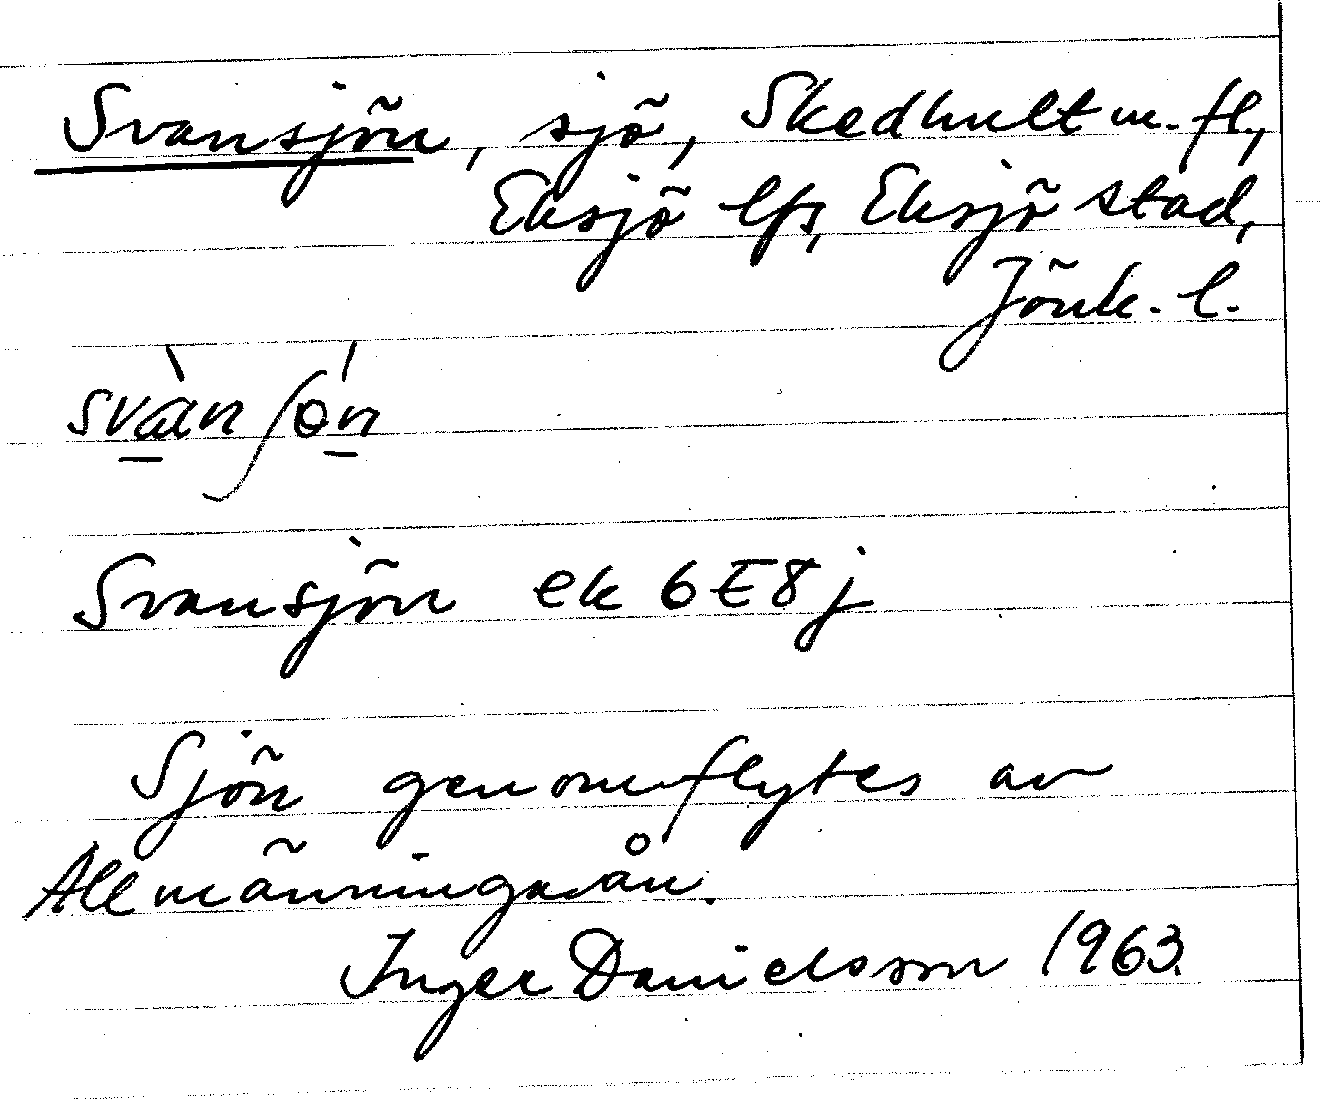 Svansjön, sjö, Skedhult m. fl,
Eksjö lfs, Eksjö stad,
Jönk. l.
svànʃǿn
Svansjön ek 6E8j
Sjön genomflytes av
Allmänningaån.
Inger Danielsson 1963.